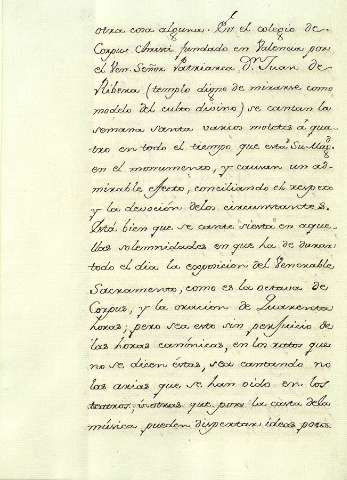 otra cosa alguna. En el colegio de
Corpus Christi fundado en Valencia por
el Ven. Señor Patriarca D.n Juan de
Ribera (templo digno de mirarse como
modelo del culto divino) se cantan la
semana santa varios motetes á qua-
tro en todo el tiempo que está Su Mag.
en el monumento, y causan un ad-
mirable efecto, conciliando el respeto
y la devocion delos circunstantes.
Está bien que se cante siesta en aque-
llas solemnidades en que ha de durar
todo el dia la exposicion del Venerable
Sacramento, como es la octava de
Corpus, y la oracion de Quarenta
horas; pero sea esto sin perjuicio de
las horas canónicas, en los ratos que
no se dicen éstas, sea cantando no
las arias que se han oido en los
teatros, ú otras que por la casta dela
música pueden dispertar ideas poco